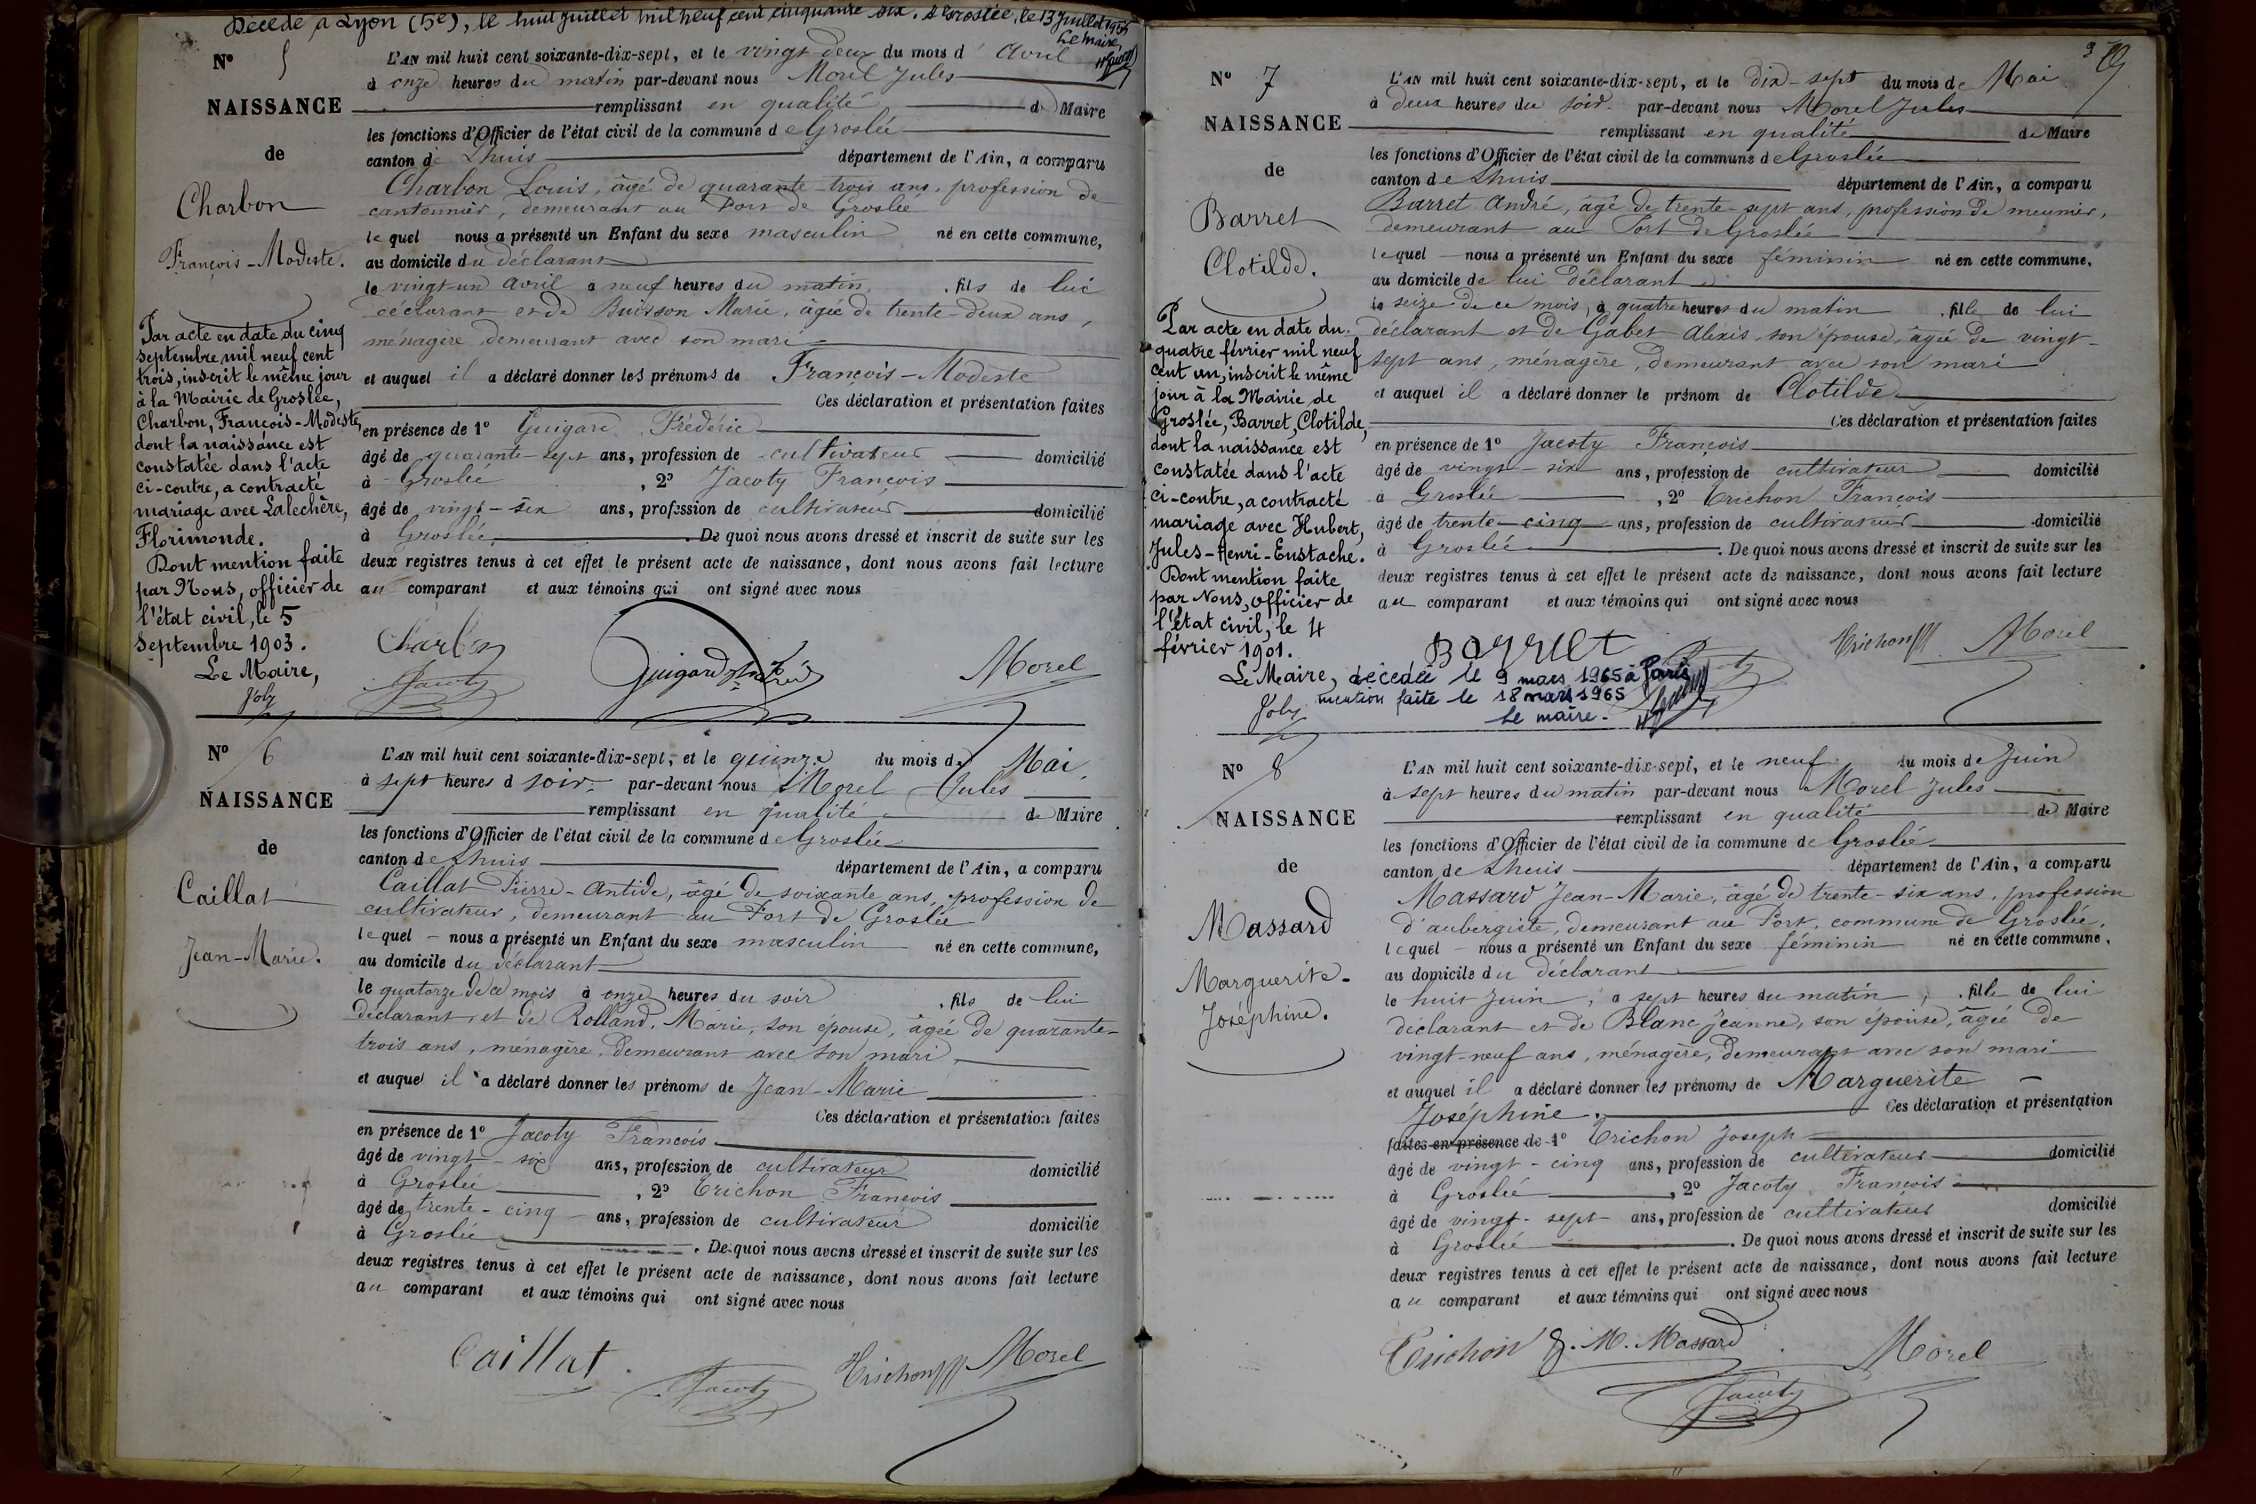 Décédé à Lyon (5e), le huit juillet mil neuf cent cinquante six. A Groslée, le 13 Juillet 1956
Le Maire,
N° 5
NAISSANCE
de
Charbon
François-Modeste.
Par acte en date du cinq
septembre mil neuf cent
trois, inscrit le même jour
à la Mairie de Groslée,
Charbon, François-Modeste,
dont la naissance est
constatée dans l'acte
ci-contre, a contracté
mariage avec Lalechère,
Florimonde.
Dont mention faite
par Nous, officier de
l'état civil, le 5
Septembre 1903.
Le Maire,
Joly
L'AN mil huit cent soixante-dix-sept, et le vingt deux du mois d' Avril
à onze heures du matin par-devant nous Morel Jules
remplissant en qualité de Maire
les fonctions d'Officier de l'état civil de la commune de Groslée
canton de Lhuis département de l'Ain, a comparu
Charbon Louis, âgé de quarante-trois ans, profession de
cantonnier, demeurant au Port de Groslée
lequel nous a présenté un Enfant du sexe masculin né en cette commune,
au domicile du déclarant
le vingt-un avril à neuf heures du matin, fils de lui
déclarant et de Buisson Marie, âgée de trente-deux ans,
ménagère demeurant avec son mari
et auquel il a déclaré donner les prénoms de François-Modeste
Ces déclaration et présentation faites
en présence de 1° Guigard Frédéric
âgé de quarante-sept ans, profession de cultivateur domicilié
à Groslée , 2° Jacoty François
âgé de vingt-six ans, profession de cultivateur domicilié
à Groslée. De quoi nous avons dressé et inscrit de suite sur les
deux registres tenus à cet effet le présent acte de naissance, dont nous avons fait lecture
au comparant et aux témoins qui ont signé avec nous
Charbon
Jacoty Guigard Morel
N° 6
NAISSANCE
de
Caillat
Jean-Marie.
L'AN mil huit cent soixante-dix-sept, et le quinze du mois de Mai,
à sept heures d soir par-devant nous Morel Jules
remplissant en qualité de Maire
les fonctions d'Officier de l'état civil de la commune de Groslée
canton de Lhuis département de l'Ain, a comparu
Caillat Pierre-Antide, âgé de soixante ans, profession de
cultivateur, demeurant au Port de Groslée
lequel nous a présenté un Enfant du sexe masculin né en cette commune,
au domicile du déclarant
le quatorze de ce mois à onze heures du soir , fils de lui
déclarant et de Rolland, Marie, son épouse, âgée de quarante-
trois ans, ménagère, demeurant avec son mari,
et auquel il a déclaré donner les prénoms de Jean-Marie
Ces déclaration et présentation faites
en présence de 1° Jacoty François
âgé de vingt-six ans, profession de cultivateur domicilié
à Groslée , 2° Trichon François
âgé de trente-cinq ans, profession de cultivateur domicilié
à Groslée . De quoi nous avons dressé et inscrit de suite sur les
deux registres tenus à cet effet le présent acte de naissance, dont nous avons fait lecture
au comparant et aux témoins qui ont signé avec nous
Caillat. Jacoty Trichon Morel
N° 7
NAISSANCE
de
Barret
Clotilde.
Par acte en date du
quatre février mil neuf
cent un, inscrit le même
jour à la Mairie de
Groslée, Barret, Clotilde,
dont la naissance est
constatée dans l'acte
ci-contre, a contracté
mariage avec Hubert,
Jules-Henri-Eustache.
Dont mention faite
par Nous, officier de
l'état civil, le 4
février 1901.
Le Maire,
Joly
L'AN mil huit cent soixante-dix-sept, et le dix-sept du mois de Mai
à deux heures du soir par-devant nous Morel Jules
remplissant en qualité de Maire
les fonctions d'Officier de l'état civil de la commune de Groslée
canton de Lhuis département de l'Ain, a comparu
Barret André, âgé de trente-sept ans, profession de meunier,
demeurant au Port de Groslée
lequel nous a présenté un Enfant du sexe féminin né en cette commune,
au domicile de lui déclarant
le seize de ce mois, à quatre heures du matin , fille de lui
déclarant et de Gabet Alexis, son épouse, âgée de vingt-
sept ans, ménagère, demeurant avec son mari
et auquel il a déclaré donner le prénom de Clotilde
Ces déclaration et présentation faites
en présence de 1° Jacoty François
âgé de vingt-six ans, profession de cultivateur domicilié
à Groslée , 2° Trichon François
âgé de trente-cinq ans, profession de cultivateur domicilié
à Groslée . De quoi nous avons dressé et inscrit de suite sur les
deux registres tenus à cet effet le présent acte de naissance, dont nous avons fait lecture
au comparant et aux témoins qui ont signé avec nous
Barret Jacoty Trichon Morel
décédée le 9 mars 1965 à Paris
mention faite le 18 mars 1965
Le maire.
N° 8
NAISSANCE
de
Massard
Marguerite-
Joséphine.
L'AN mil huit cent soixante-dix-sept, et le neuf du mois de Juin
à sept heures du matin par-devant nous Morel Jules
remplissant en qualité de Maire
les fonctions d'Officier de l'état civil de la commune de Groslée
canton de Lhuis département de l'Ain, a comparu
Massard Jean-Marie, âgé de trente-six ans, profession
d'aubergiste, demeurant au Port, commune de Groslée,
lequel nous a présenté un Enfant du sexe féminin né en cette commune,
au domicile du déclarant
le huit Juin, à sept heures du matin, fille de lui
déclarant et de Blanc Jeanne, son épouse, âgée de
vingt-neuf ans, ménagère, demeurant avec son mari
et auquel il a déclaré donner les prénoms de Marguerite
Joséphine. Ces déclaration et présentation
faites en présence de 1° Trichon Joseph
âgé de vingt-cinq ans, profession de cultivateur domicilié
à Groslée , 2° Jacoty François
âgé de vingt-sept ans, profession de cultivateur domicilié
à Groslée . De quoi nous avons dressé et inscrit de suite sur les
deux registres tenus à cet effet le présent acte de naissance, dont nous avons fait lecture
au comparant et aux témoins qui ont signé avec nous
Trichon J. M. Massard Morel
Jacoty